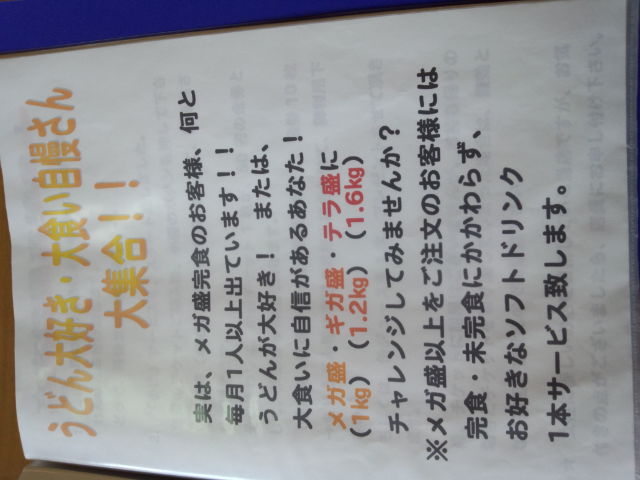 うどん大好き・大食い自慢さん
大集合！！
実は、メガ盛完食のお客様、何と
毎月1人以上出ています！！
うどんが大好き！　または、
大食いに自信があるあなた！
メガ盛・ギガ盛・テラ盛に
（1kg）（1.2kg）（1.6kg）
チャレンジしてみませんか？
※メガ盛以上をご注文のお客様には
完食・未完食にかかわらず、
お好きなソフトドリンク
1本サービス致します。